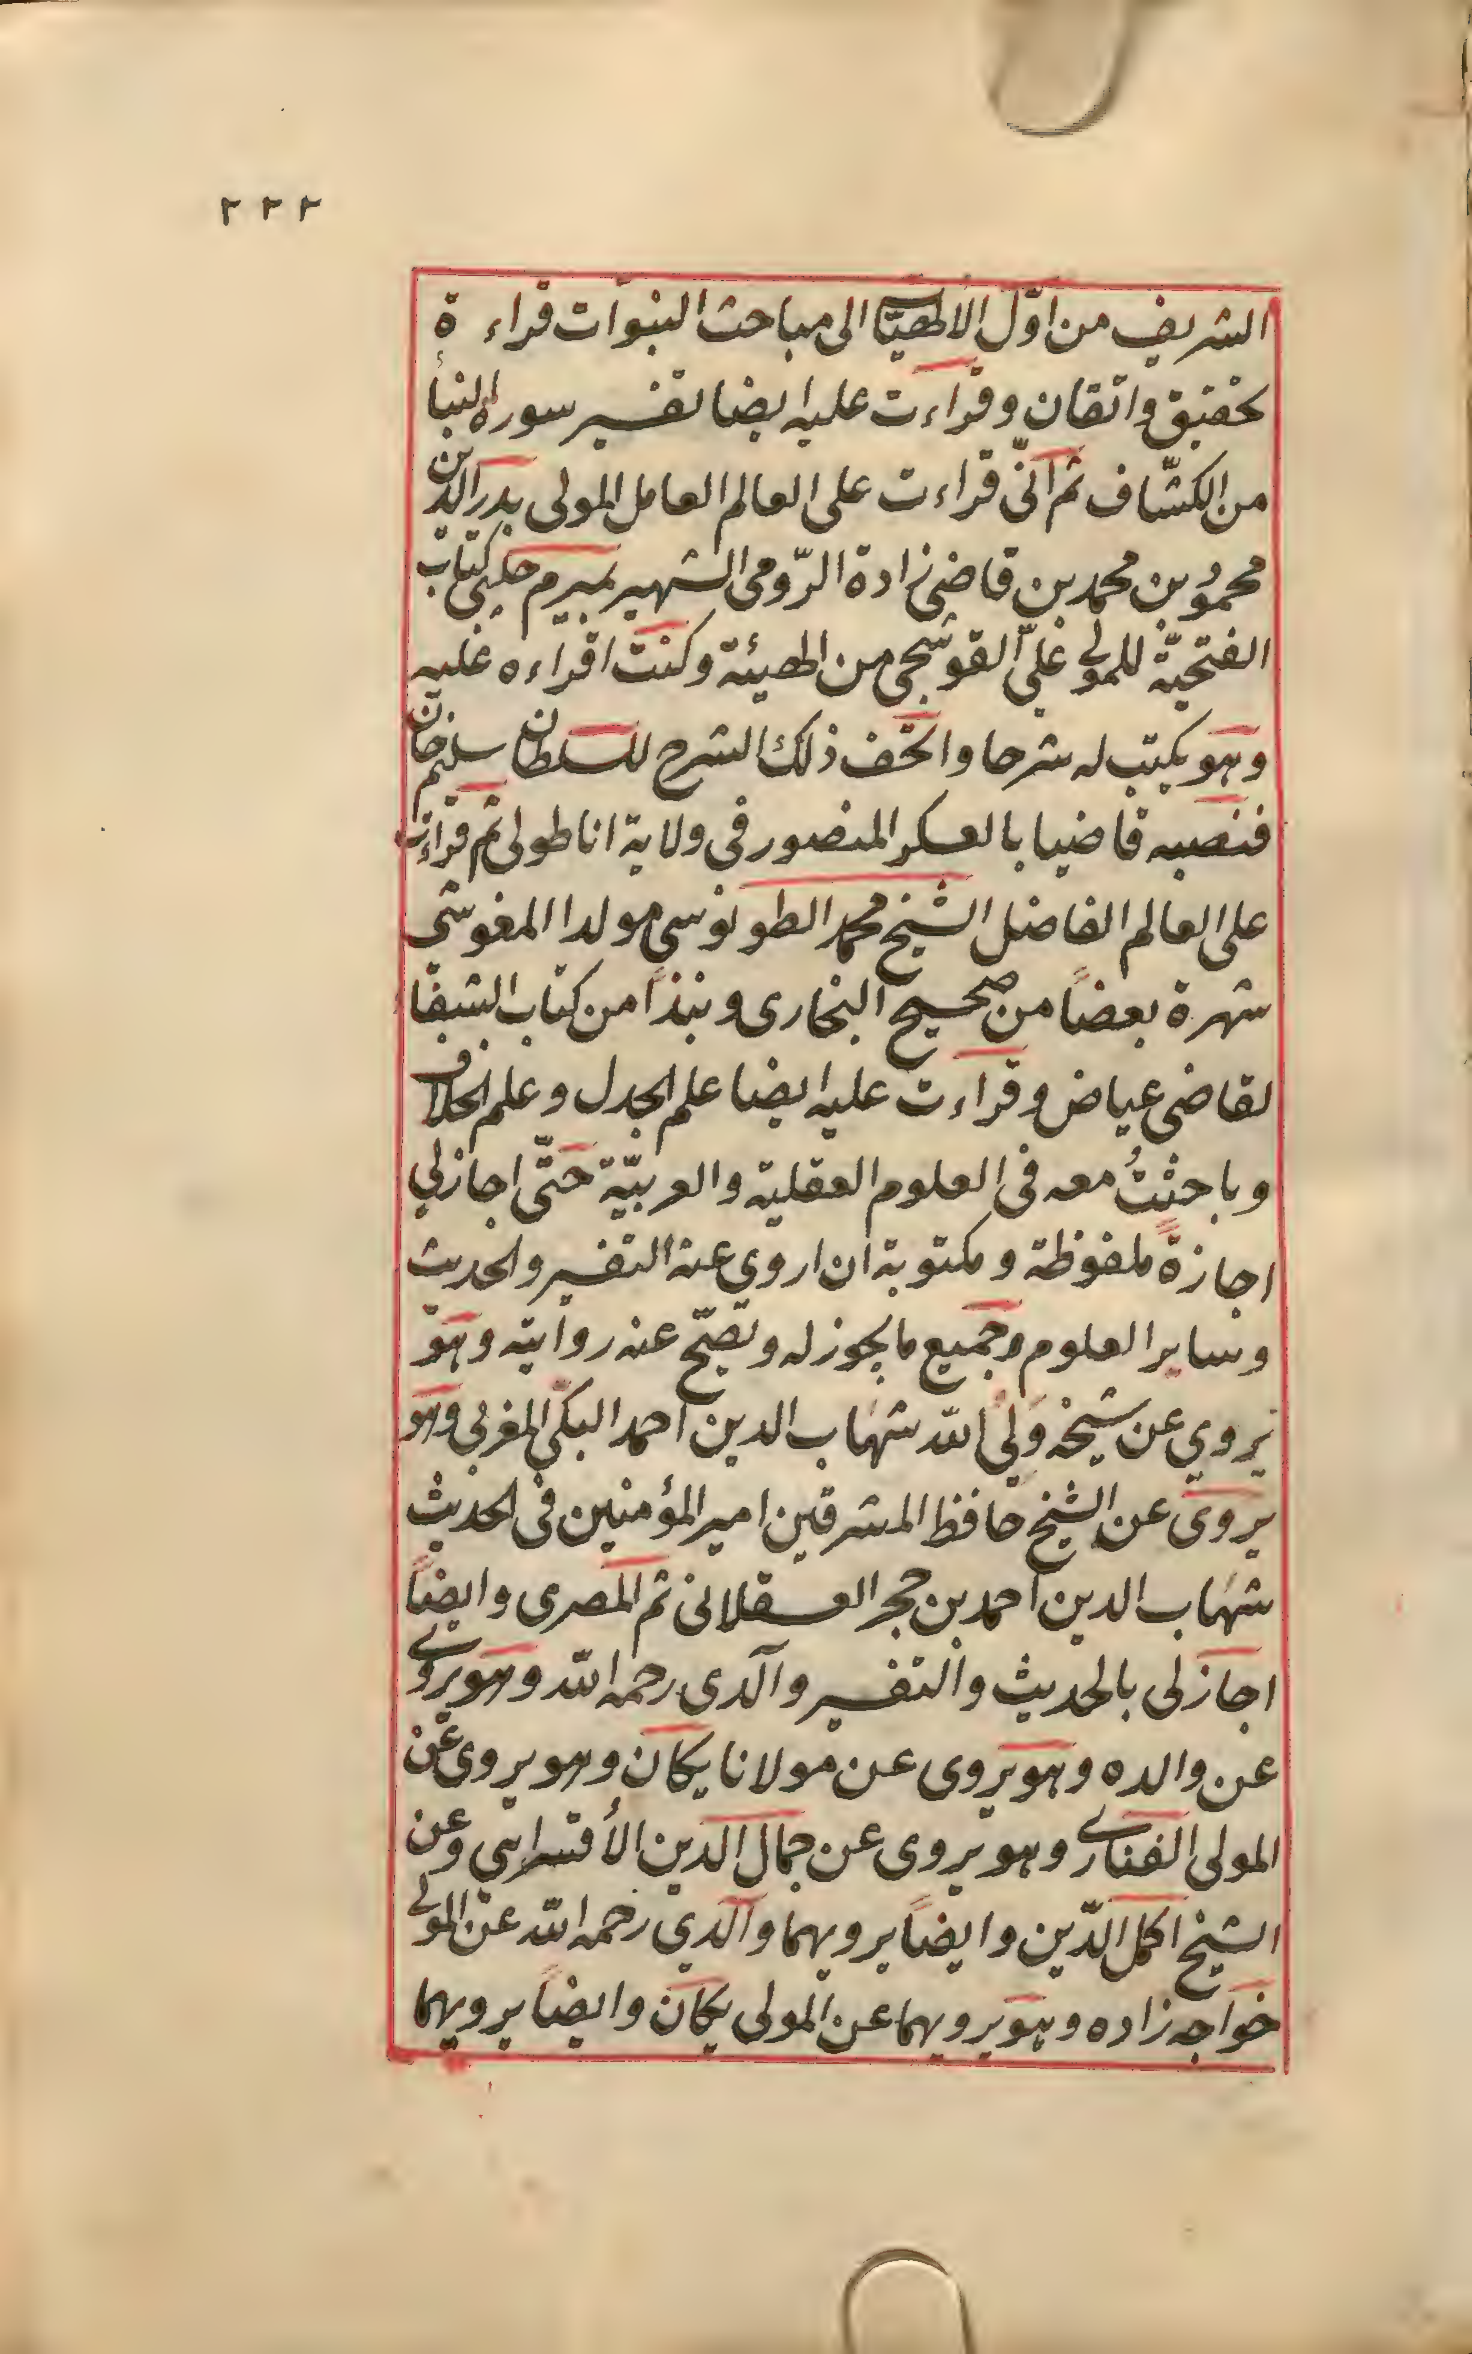 ٢٢٢
الشريف من اوّل الالهيّات الى مباحث النبوّات قراءة
تحقيق واتقان وقراءت عليه ايضا تفسير سورة النبأ
من الكشّاف ثم انّى قراءت على العالم العامل المولى بدر الدين
محمود بن محمد بن قاضى زادة الرّومى الشهير بميرم جلبى كتاب
الفتحيّة للمولى علىّ القوشجى من الهيئة وكنت اقراءه عليه
وهو يكتب له شرحا واتحف ذلك الشرح للسلطان سليم خان
فنصبه قاضيا بالعسكر المنصور فى ولاية اناطولى ثم قراءت
على العالم الفاضل الشيخ محمد الطونوسى مولدا المغوشى
شهرة بعضاً من صحيح البخارى ونبذا من كتاب الشفا
لقاضى عياض وقراءت عليه ايضا علم الجدل وعلم الخلاف
وباحثتُ معه فى العلوم العقلية والعربيّة حتّى اجازلي
اجازةً ملفوظة ومكتوبة ان اروى عنه التفسير والحديث
وساير العلوم وجميع مايجوز له وتصّح عنه روايته وهو
يروي عن شيخه ولى الله شهاب الدين احمد البكى المغربي وهو
يروى عن الشيخ حافظ المشرقين امير المؤمنين فى الحديث
شهاب الدين احمد بن حجر العسقلانى ثم المصرى وايضاً
اجازلى بالحديث والتفسير والدى رحمه الله وهو يروى
عن والده وهو يروى عن مولانا يكان وهو يروى عن
المولى الفنارى وهو يروى عن جمال الدين الأقسرايى وعن
الشيخ اكمل الدّين وايضاً يرويهما والدي رحمه الله عن المولى
خواجه زاده وهو يرويهما عن المولى يكان وايضاً يرويهما